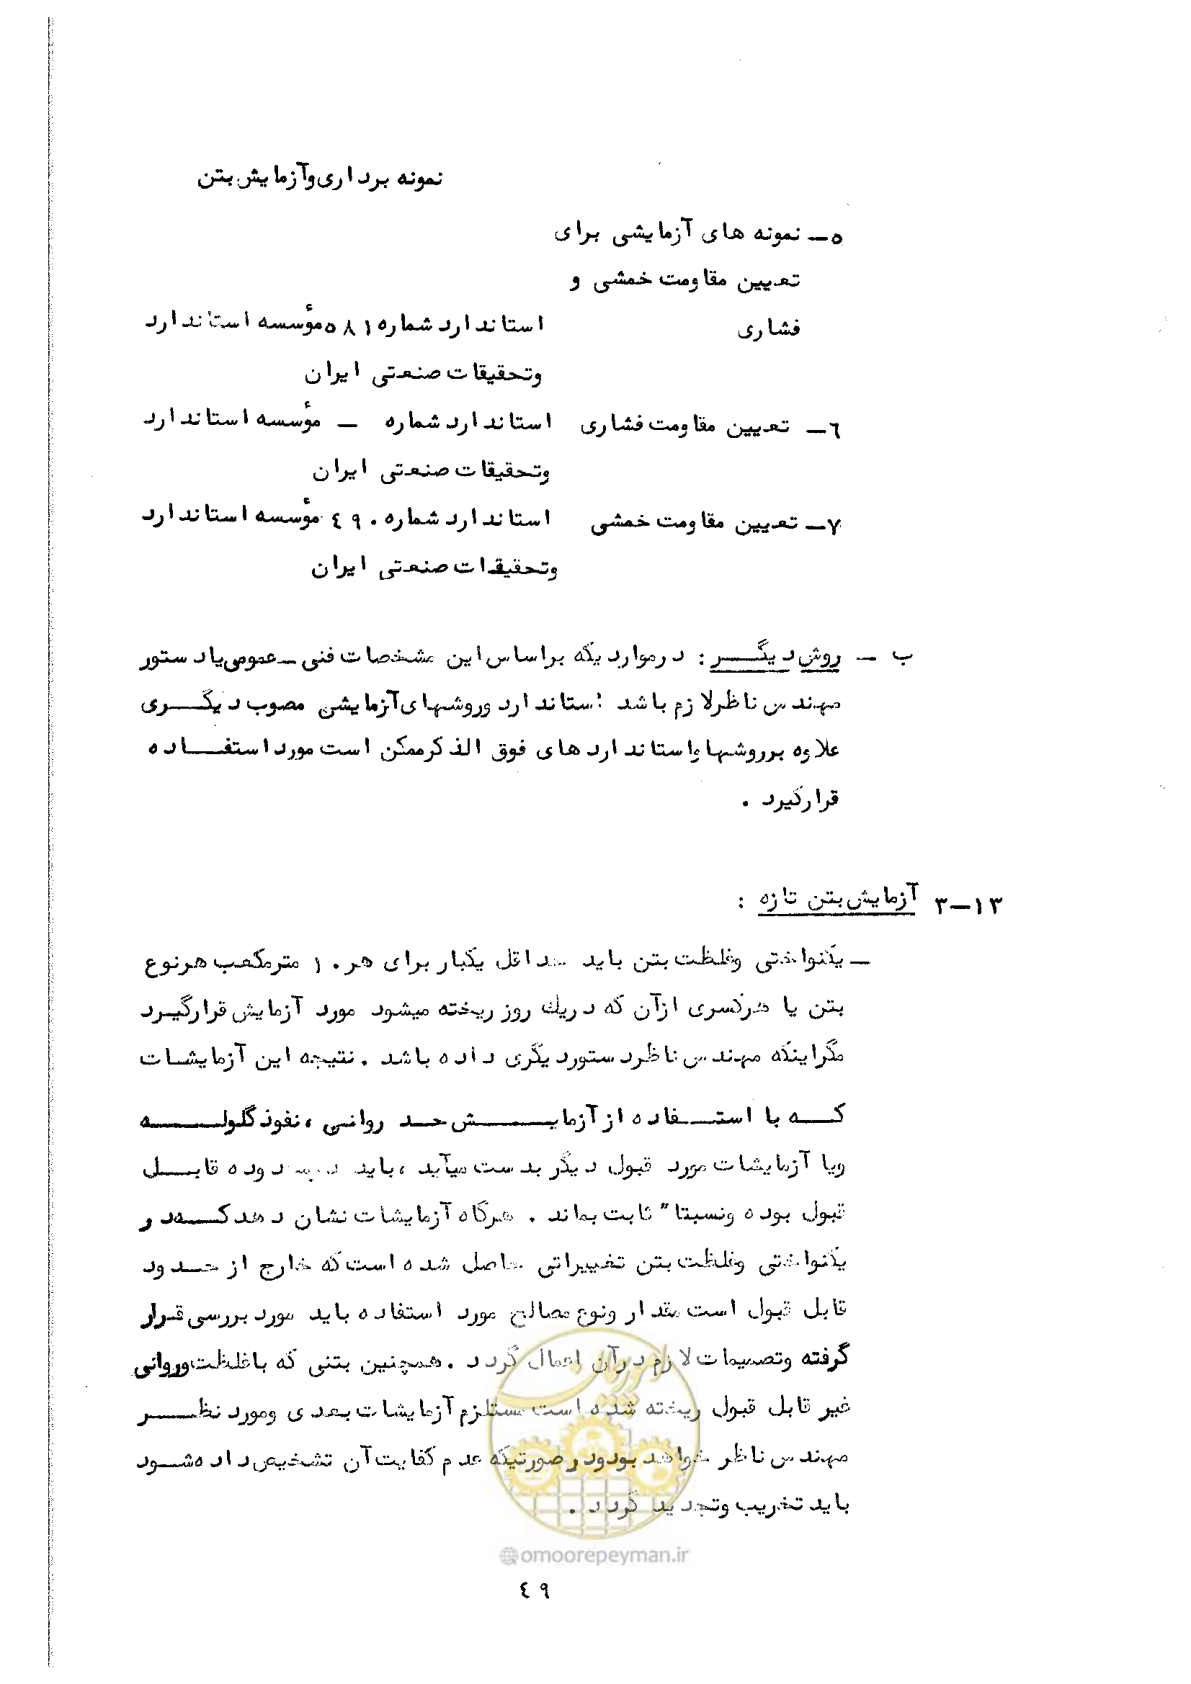 نمونه برداری وآزمایش بتن
۵ــ نمونه های آزمایشی برای
تعیین مقاومت خمشی و
فشاری استاندارد شماره ۵۸۱ مؤسسه استاندارد
وتحقیقات صنعتی ایران
۶ــ تعیین مقاومت فشاری استاندارد شماره ــ مؤسسه استاندارد
وتحقیقات صنعتی ایران
۷ــ تعیین مقاومت خمشی استاندارد شماره ۴۹۰ مؤسسه استاندارد
وتحقیقات صنعتی ایران
ب ــ روش دیگر : درمواردیکه براساس این مشخصات فنی ــ عمومی یا دستور
مهندس ناظر لازم باشد استاندارد وروشهای آزمایشی مصوب دیگری
علاوه برروشها واستانداردهای فوق الذکرممکن است مورد استفاده
قرارگیرد .
۱۳ــ۳ آزمایش بتن تازه :
ــ یکنواختی وغلظت بتن باید حداقل یکبار برای هر ۱۰ مترمکعب هرنوع
بتن یا هرکسری ازآن که دریک روز ریخته میشود مورد آزمایش قرارگیرد
مگراینکه مهندس ناظردستوردیگری داده باشد . نتیجه این آزمایشات
که با استفاده ازآزمایش حد روانی ، نفوذ گلوله
ویا آزمایشات مورد قبول دیگر بدست میآید ، باید دوده قابل
قبول بوده ونسبتا" ثابت بماند . هرگاه آزمایشات نشان دهدکه در
یکنواختی وغلظت بتن تغییراتی حاصل شده است که خارج از حدود
قابل قبول است مقدار ونوع مصالح مورد استفاده باید مورد بررسی قرار
گرفته وتصمیمات لازم درآن اعمال گردد . همچنین بتنی که باغلظت وروانی
غیر قابل قبول ریخته شده است مستلزم آزمایشات بعدی ومورد نظر
مهندس ناظر خواهد بود ودر صورتیکه عدم کفایت آن تشخیص داده شود
باید تخریب وتجدید گردد .
امور پیمان
@omoorepeyman.ir
۴۹